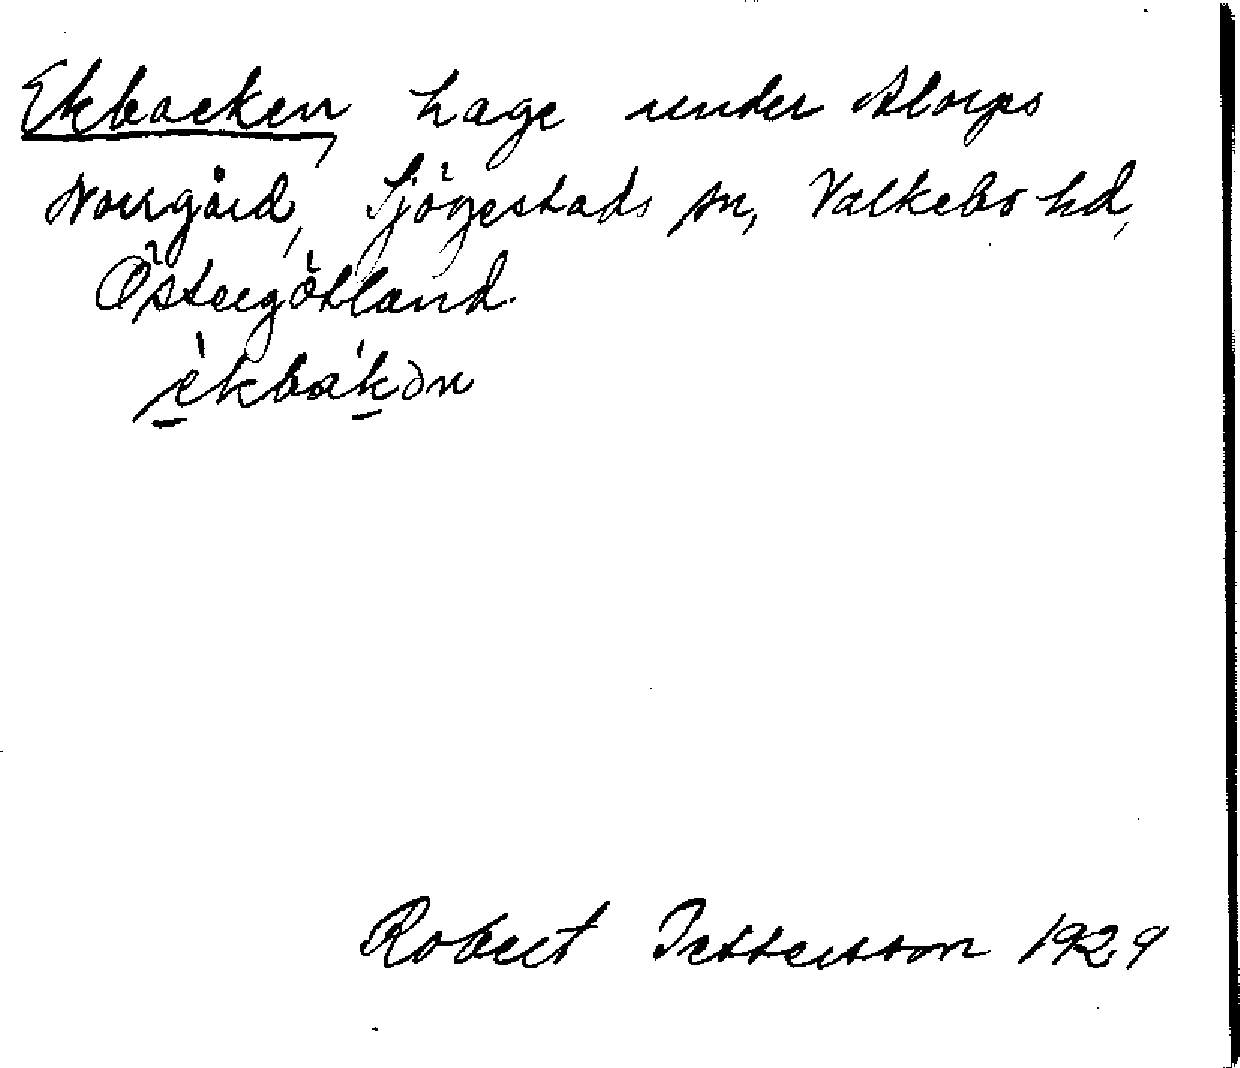 Ekbacken, hage under Alorps
Norrgård, Sjögestads sn, Valkebo hd,
Östergötland
èkbák∂n
Robert Pettersson 1929